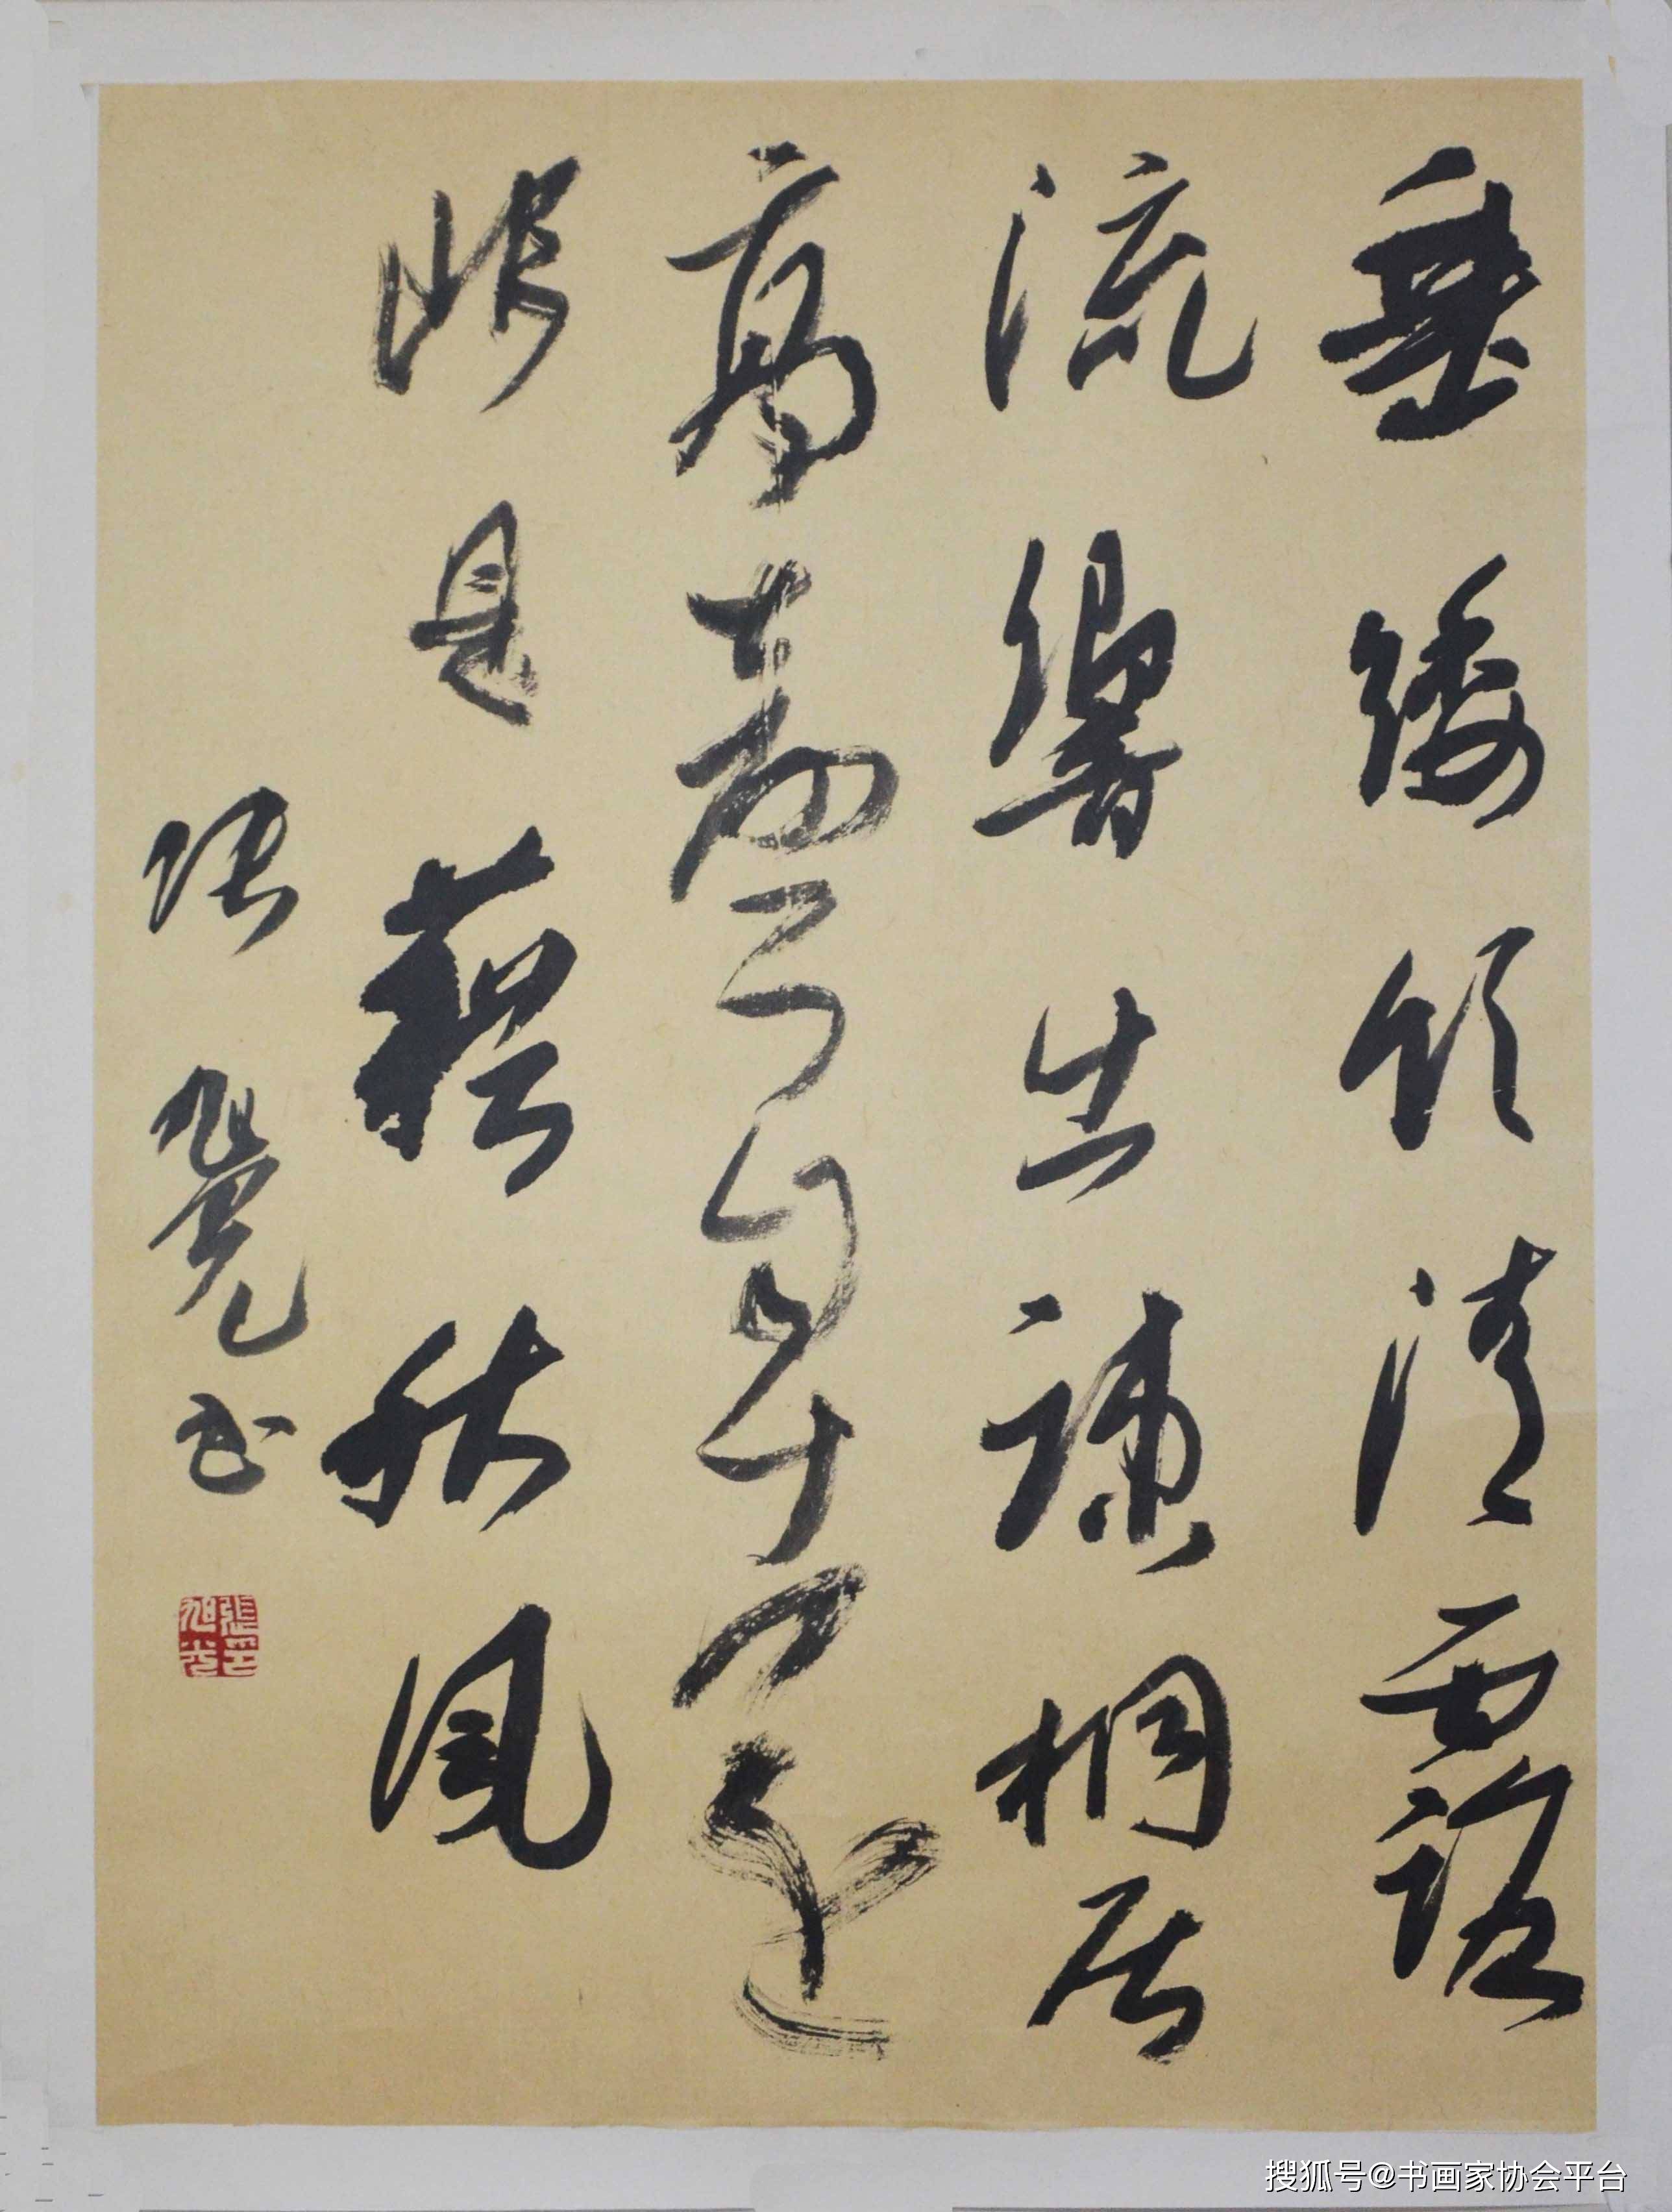 垂緌饮清露
流響出疎桐居
高聲自遠
非是藉秋風
张旭光书
張旭光印
搜狐号@书画家协会平台